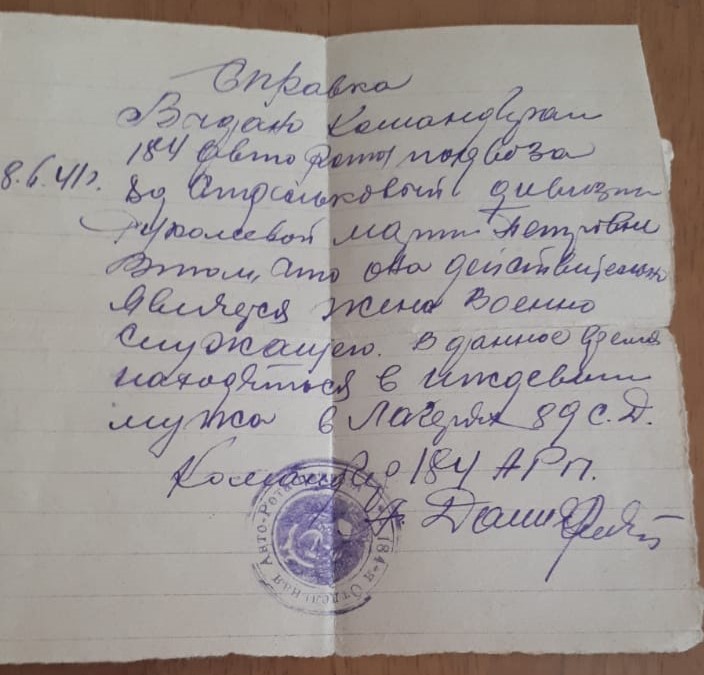 Справка
Выдано Командиром
184 Авто Роты подвоза
8.6.41г. 89 Стрелковый дивизии
Марти Петровны
Втом, что она действительно
является жена Военно
служащего. В данное время
находяться в иждевении
мужа в Лагерях 89 С.Д.
Командир 184 АРП.
184-я Отдельная Авто-Рота